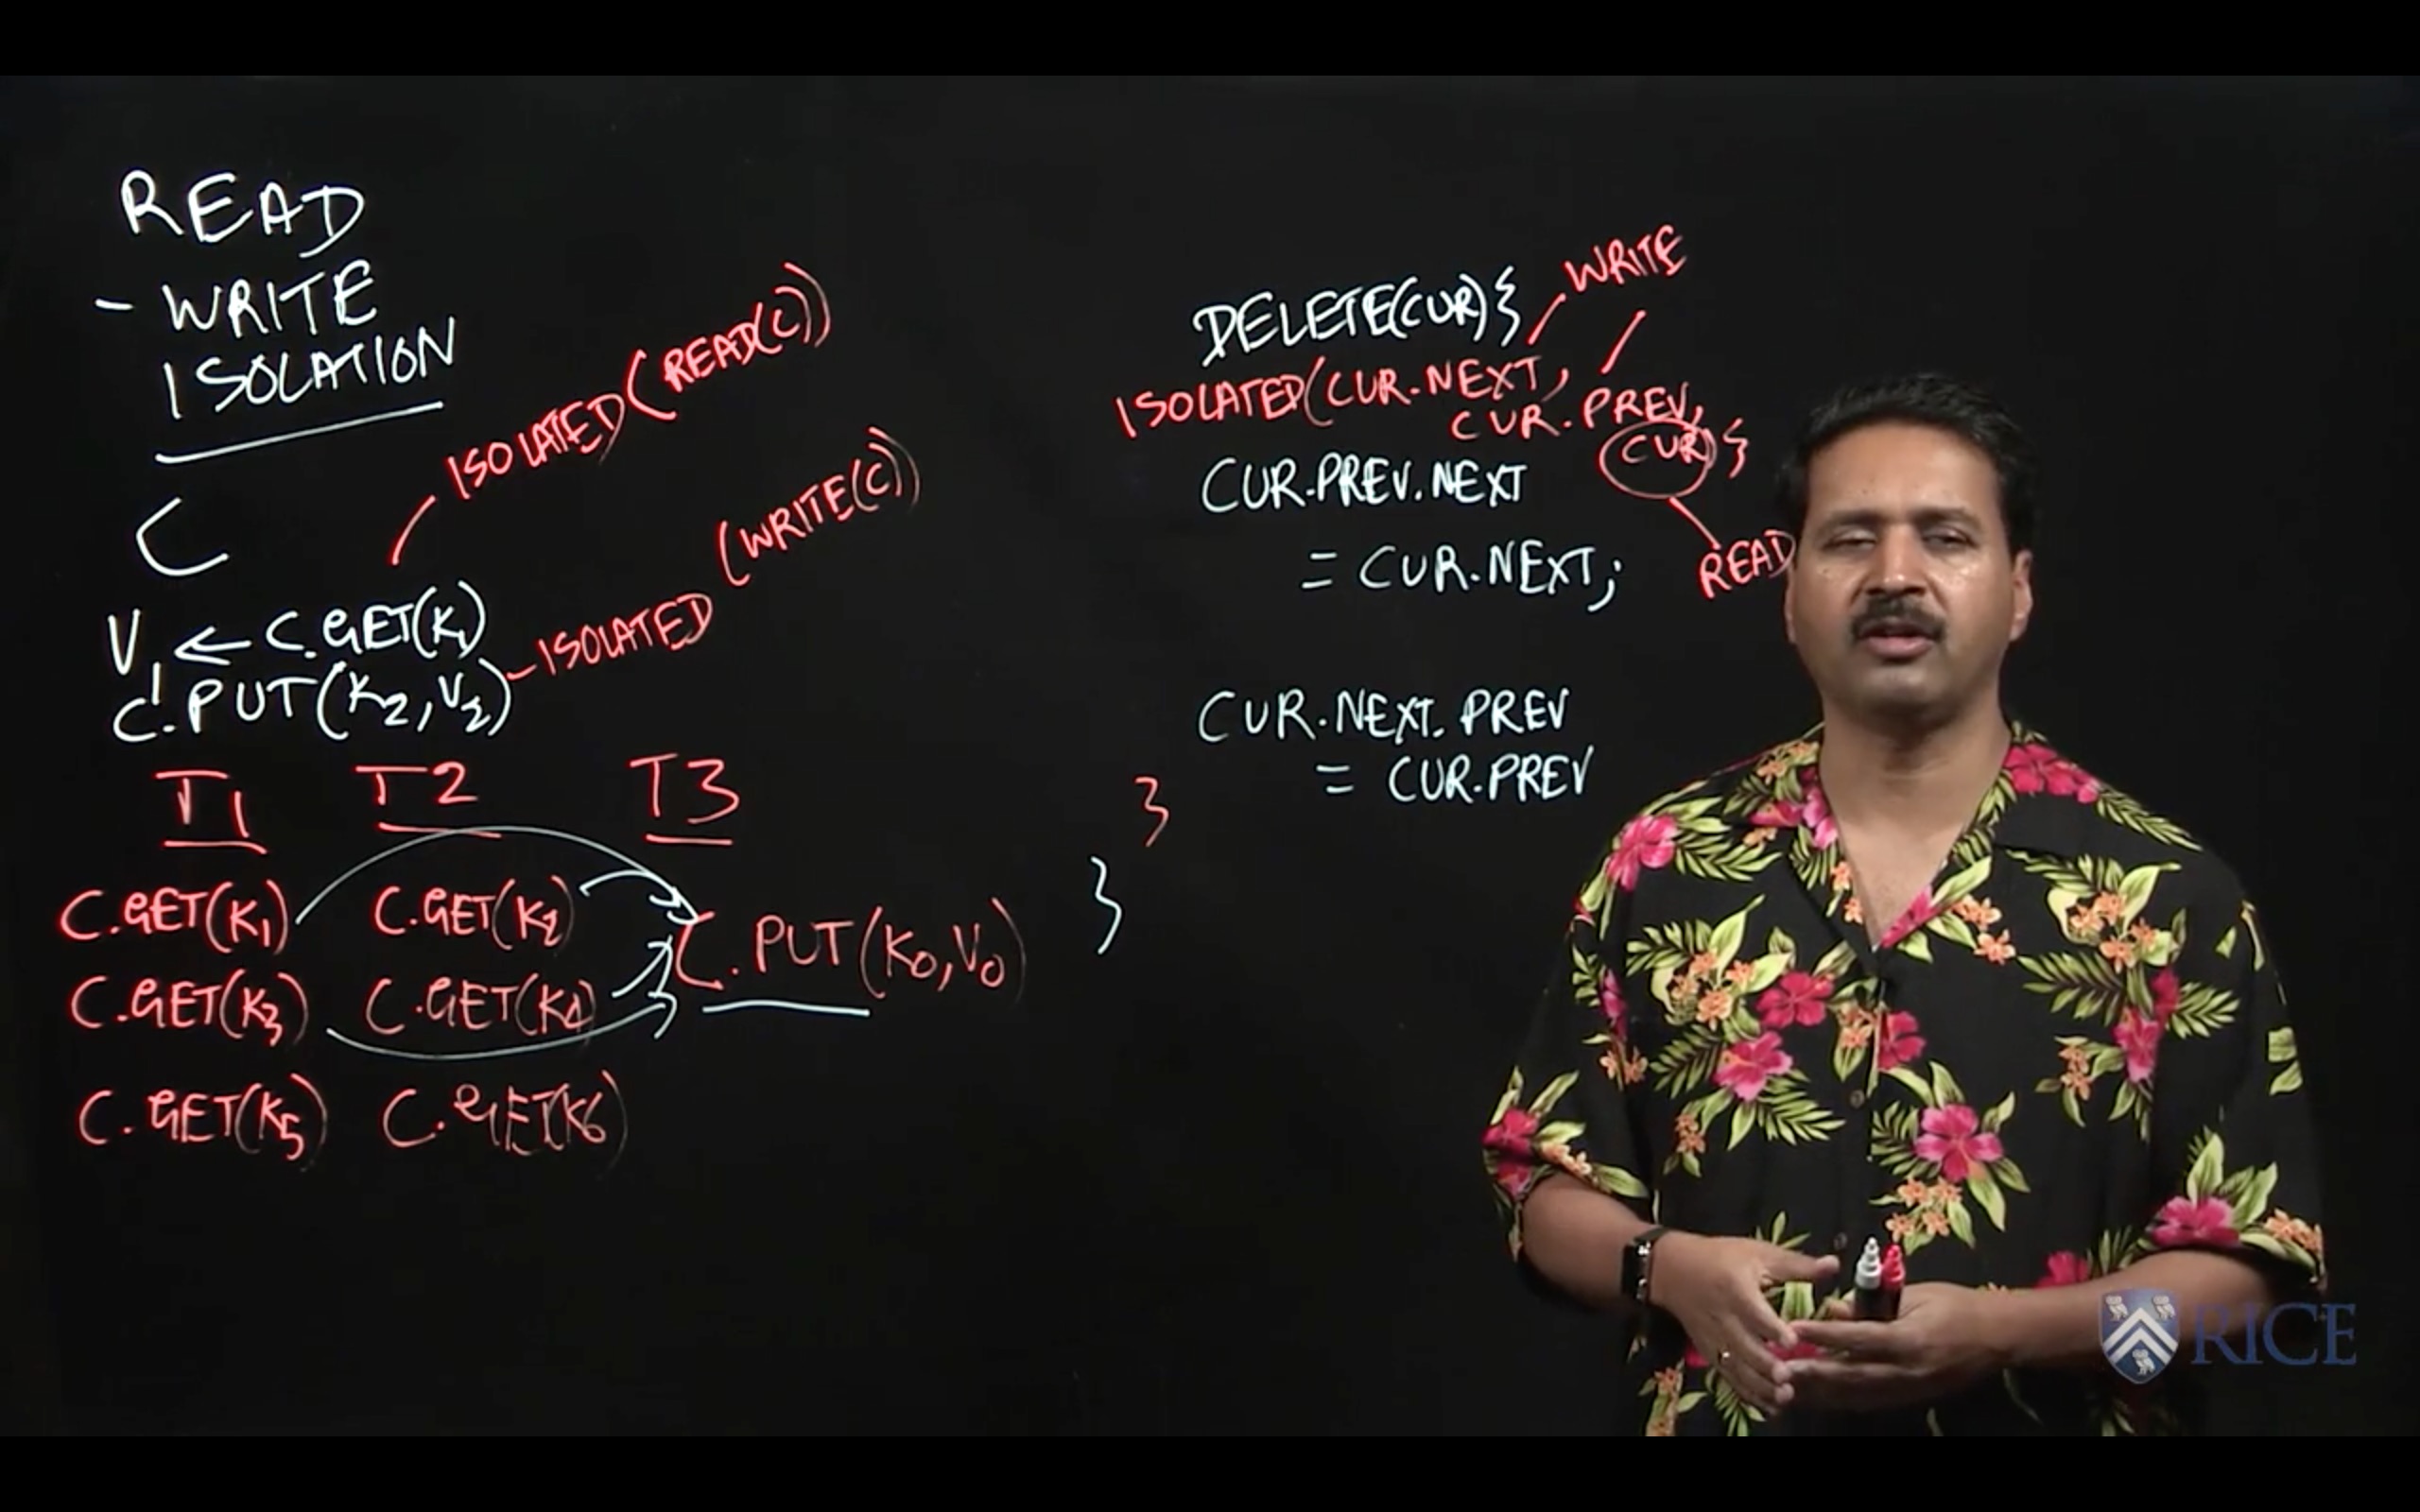 READ
- WRITE
ISOLATION
C
ISOLATED(READ(C))
V1 ← C.GET(K1)
C.PUT(K2,V2) - ISOLATED (WRITE(C))
T1 T2 T3
C.GET(K1) C.GET(K2)
C.PUT(K0,V0)
C.GET(K3) C.GET(K4)
C.GET(K5) C.GET(K6)
WRITE
DELETE(CUR){
ISOLATED(CUR.NEXT,
CUR.PREV,
CUR){
READ
CUR.PREV.NEXT
= CUR.NEXT;
CUR.NEXT.PREV
= CUR.PREV
}
}
RICE